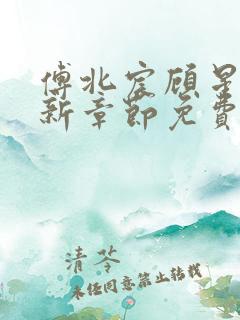 傅北宸顾星
新章节免费
清苓
未经同意禁止转载